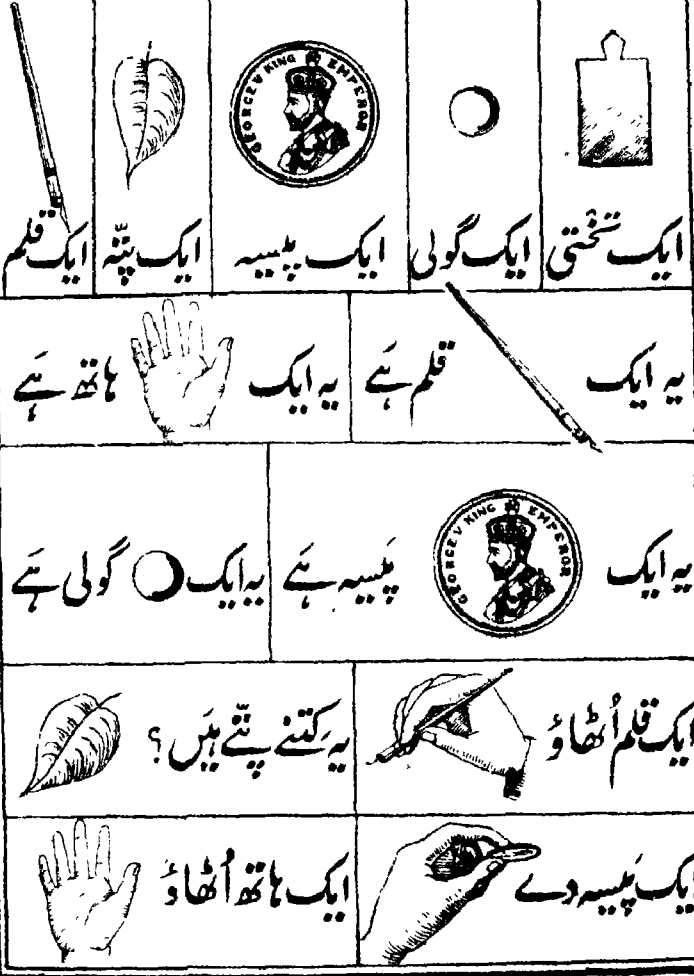 ایک تختی
ایک گولی
GEORGE V KING EMPEROR
ایک پیسہ
ایک پتّہ
ایک قلم
یہ ایک قلم ہَے
یہ ایک ہاتھ ہَے
یہ ایک GEORGE V KING EMPEROR پَیسہ ہَے
یہ ایک گولی ہَے
ایک قلم اُٹھاؤ
یہ کِتنے پتّے ہَیں؟
ایک پَیسہ دے
ایک ہاتھ اُٹھاؤ